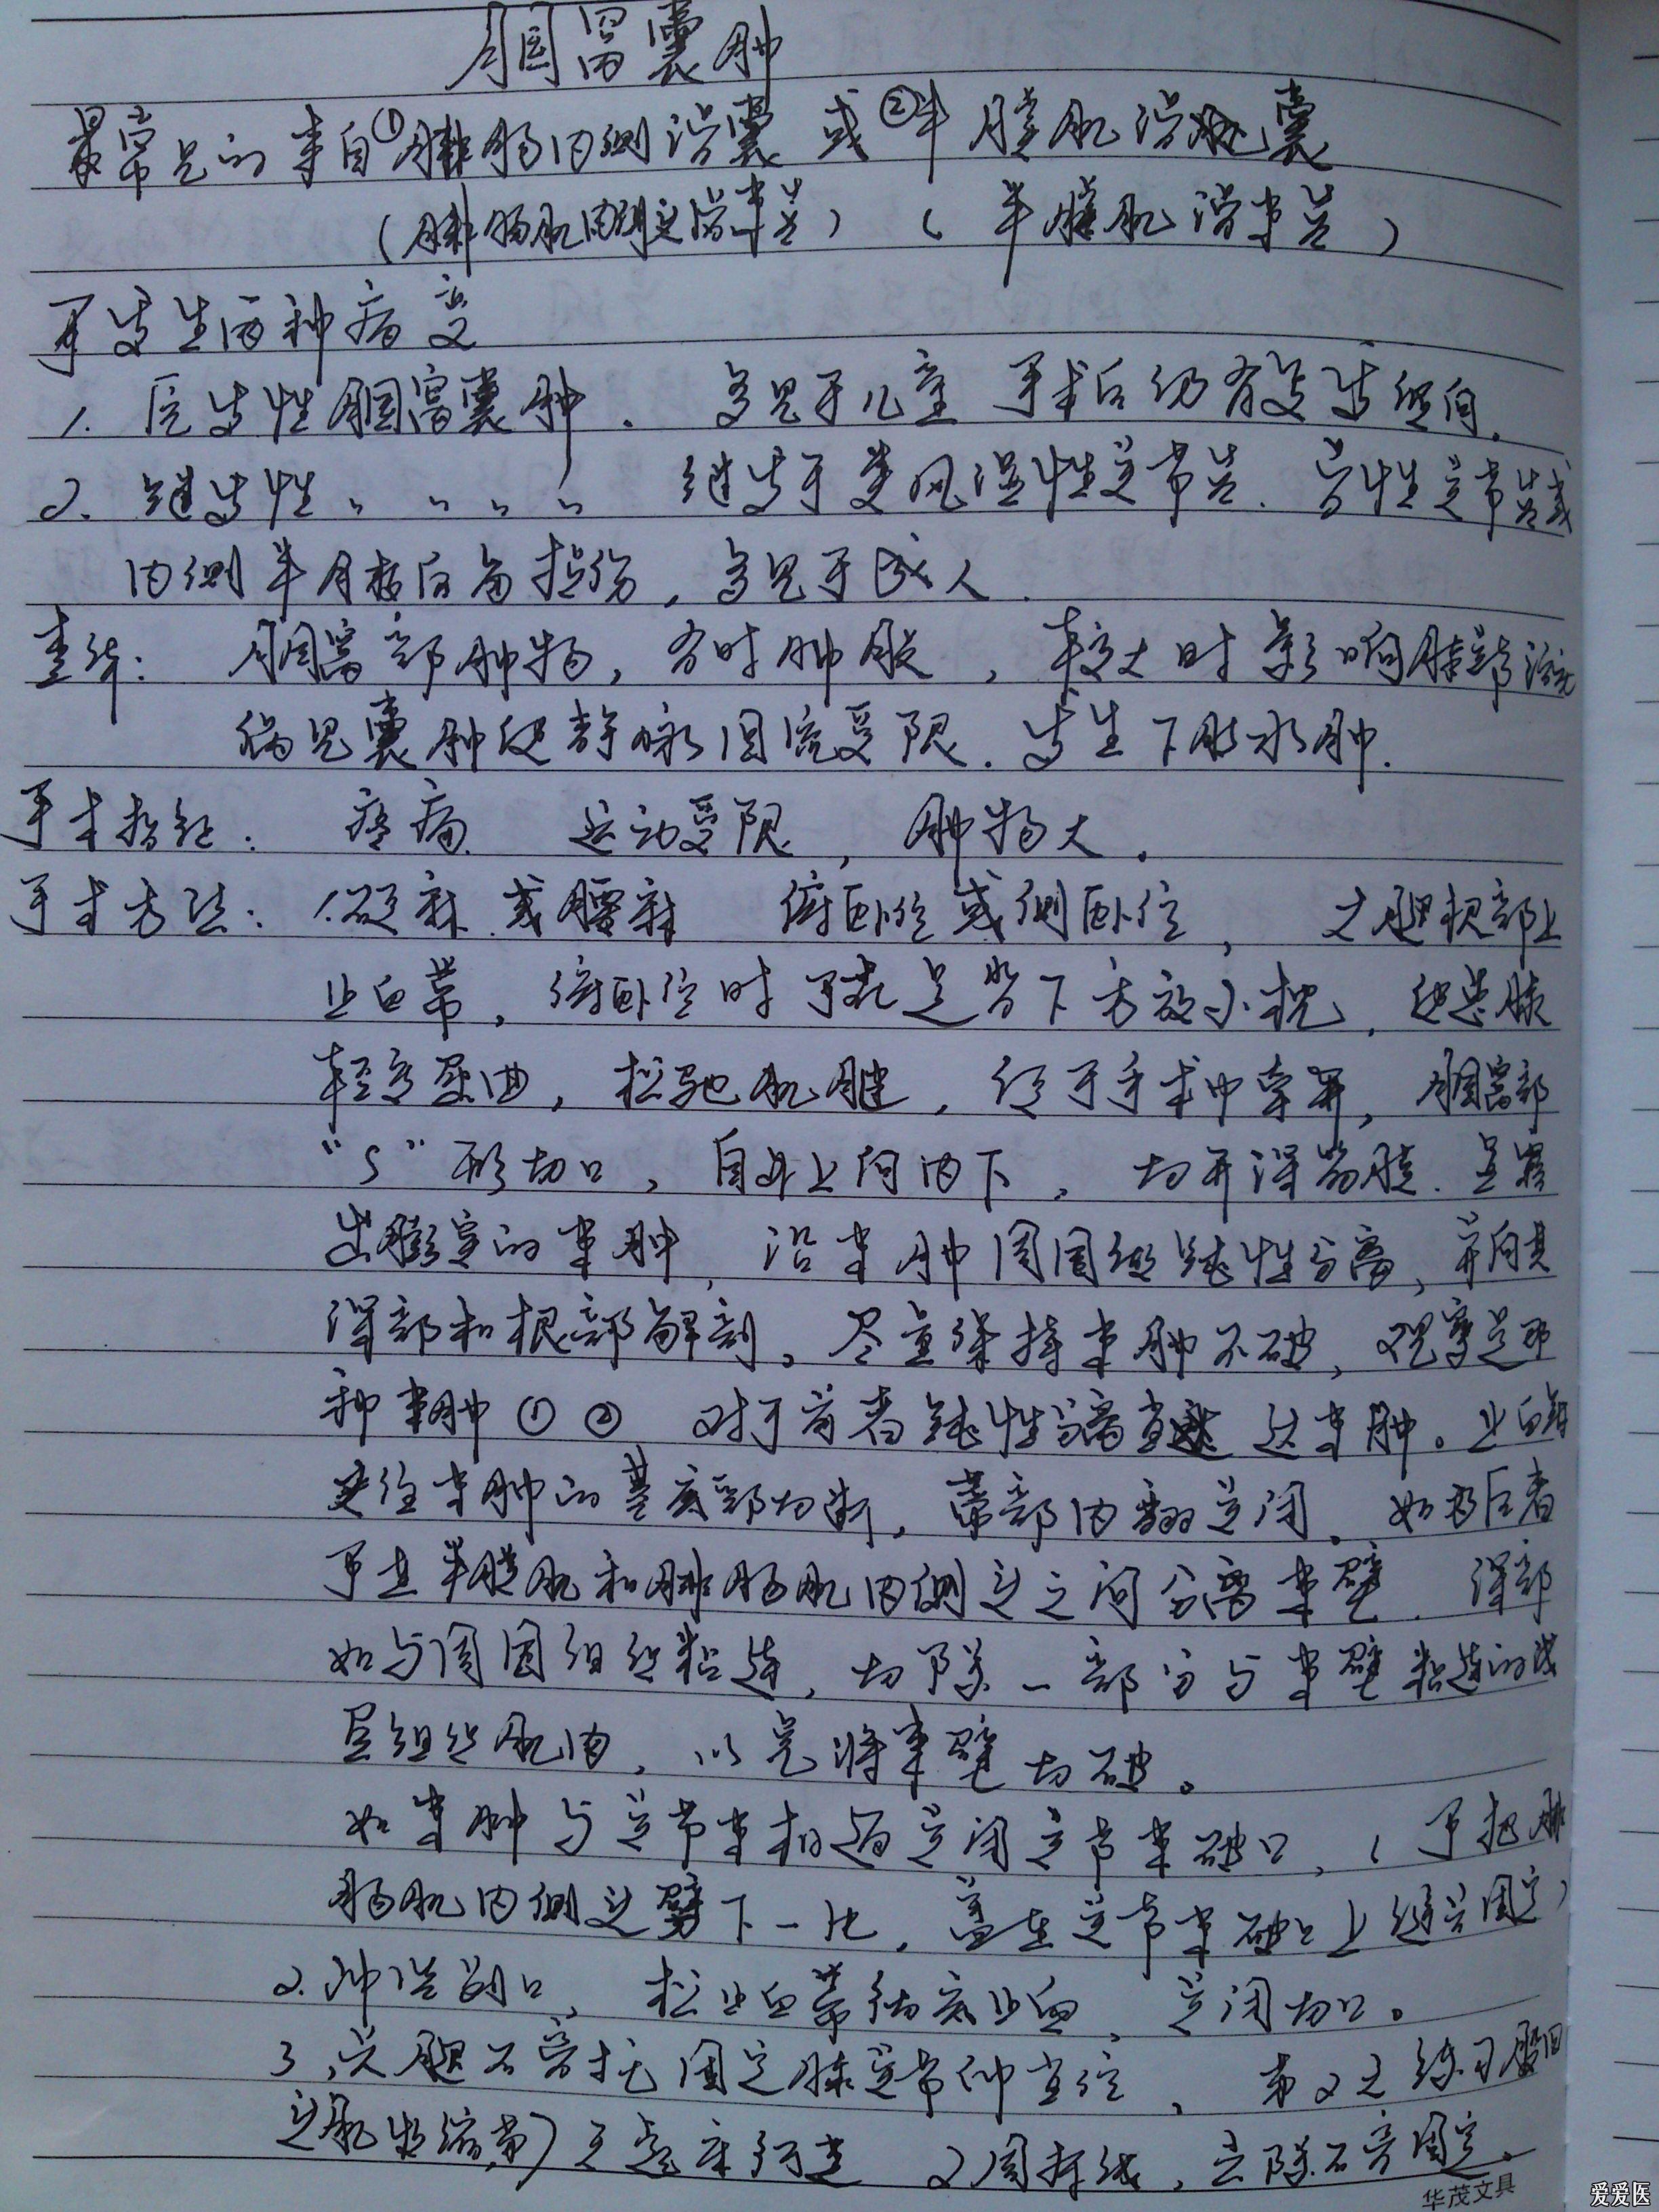 腘窝囊肿
最常见的来自①腓肠内侧滑囊 或②半膜肌滑囊
(腓肠肌内侧头滑囊炎) (半膜肌滑囊炎)
可发生两种病变
1. 原发性腘窝囊肿. 多见于儿童 手术后仍有复发倾向.
2. 继发性 〃 〃 〃 〃 继发于类风湿性关节炎. 骨性关节炎或
内侧半月板后角损伤, 多见于成人.
表现: 腘窝部肿物, 有时肿胀, 较大时影响膝关节活动
偶见囊肿使静脉回流受限. 发生下肢水肿.
手术指征: 疼痛 运动受限, 肿物大.
手术方法: 1.硬麻 或腰麻 俯卧位或侧卧位, 大腿根部上
止血带, 俯卧位时可在足背下方放小枕, 使患膝
轻度屈曲, 松驰肌腱, 便于手术中牵开, 腘窝部
“S”形切口, 自外上向内下, 切开深筋膜. 显露
出膨室的囊肿, 沿囊肿周围做钝性分离, 并向其
深部和根部解剖. 尽量保持囊肿不破, 观察是那
种囊肿①② 对于前者钝性分离直达囊肿. 止血钳
夹住囊肿的基底部切断, 蒂部内翻关闭. 如为后者
可在半膜肌和腓肠肌内侧头之间分离囊壁. 深部
如与周围组织粘连, 切除一部分与囊壁粘连的浅
层组织肌肉, 以免将囊壁切破。
如囊肿与关节囊相通关闭关节囊破口, (可把腓
肠肌内侧头劈下一片, 盖在关节囊破口上缝合固定)
2.冲洗创口, 松止血带彻底止血, 关闭切口。
3,长腿石膏托固定膝关节伸直位, 第2天练习股四
头肌收缩, 第3天起床行走 2周拆线, 去除石膏固定.
华茂文具
爱爱医